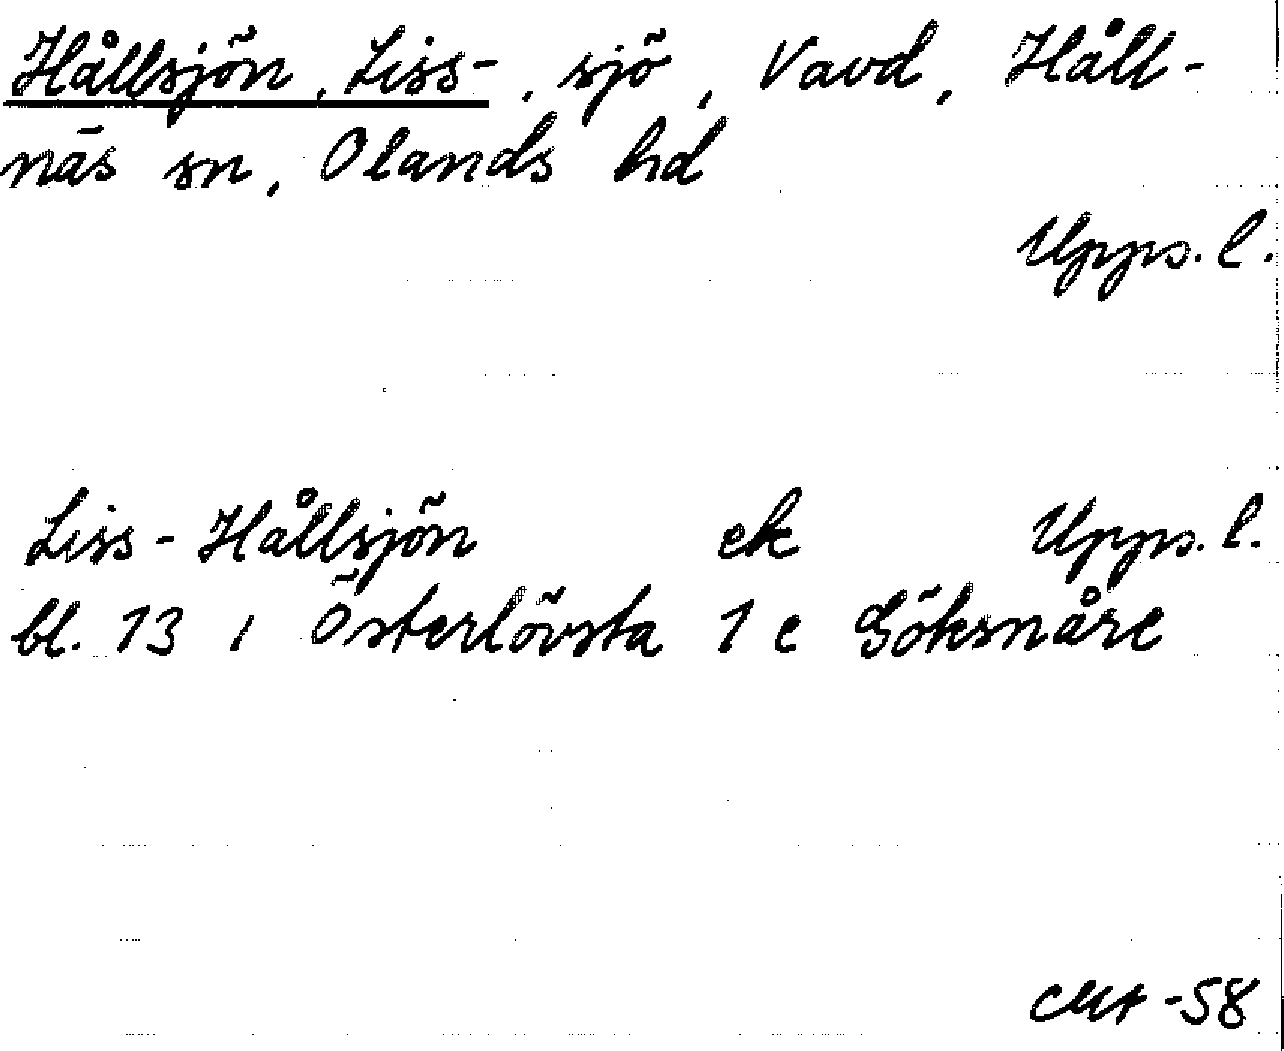 Hållsjön, Liss-, sjö, Vavd, Håll-
näs sn, Olands hd
Upps. l.
Liss-Hållsjön ek Upps. l.
bl. 13 i Österlövsta 1 e Göksnåre
-58